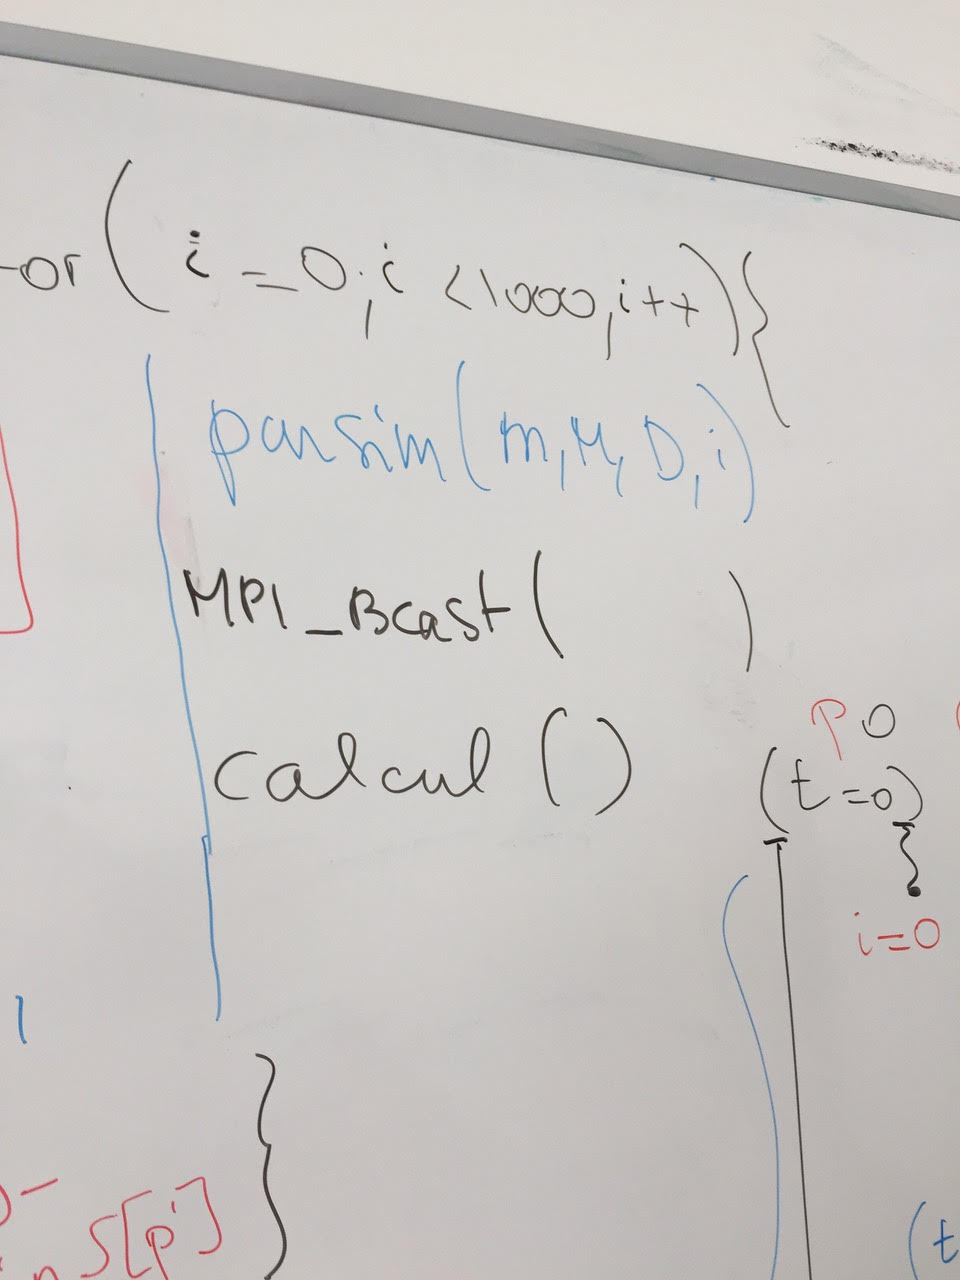 or( i = 0; i < 1000, i++){
parsim(m, M, D, i)
MPI_Bcast( )
calcul ()
p 0
(t=0)
i=0
}
S[p']
(t